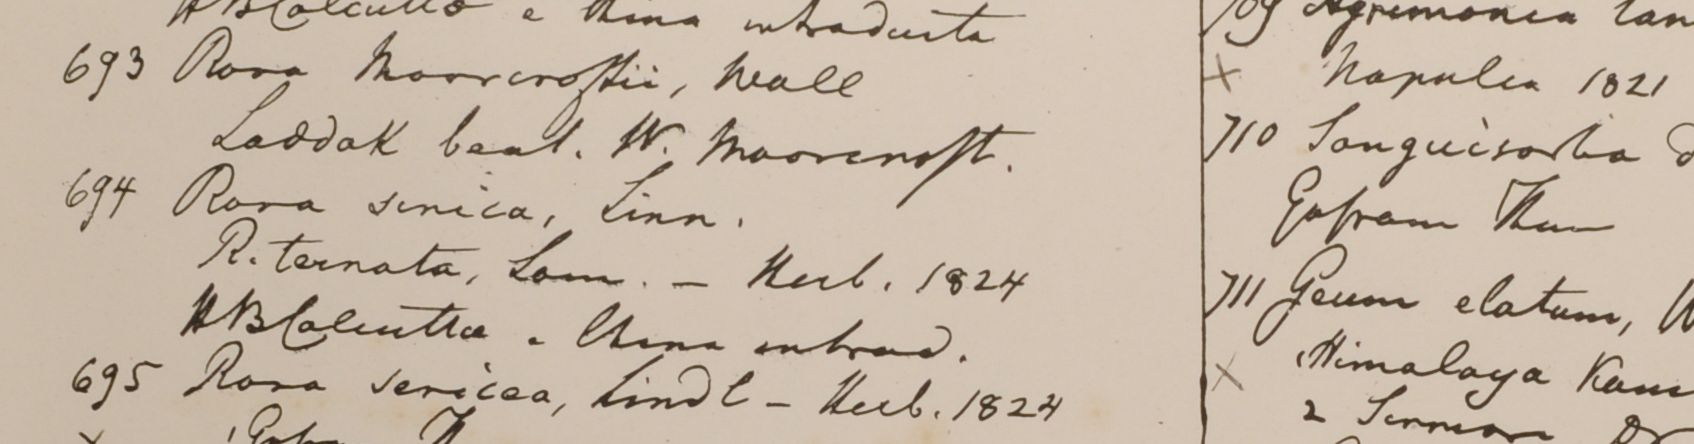 HBCalcutta e China introducta
693 Rosa Moorcroftii, Wall
Laddak beat. W. Moorcroft.
694 Rosa sinica, Linn.
R. ternata, Lam. – Herb. 1824
HBCalcutta e China introd.
695 Rosa sericea, Lindl – Herb. 1824
709 Agrimonia lan
x Napalia 1821
710 Sanguisorba d
711 Geum elatum, W
x Himalaya Kam